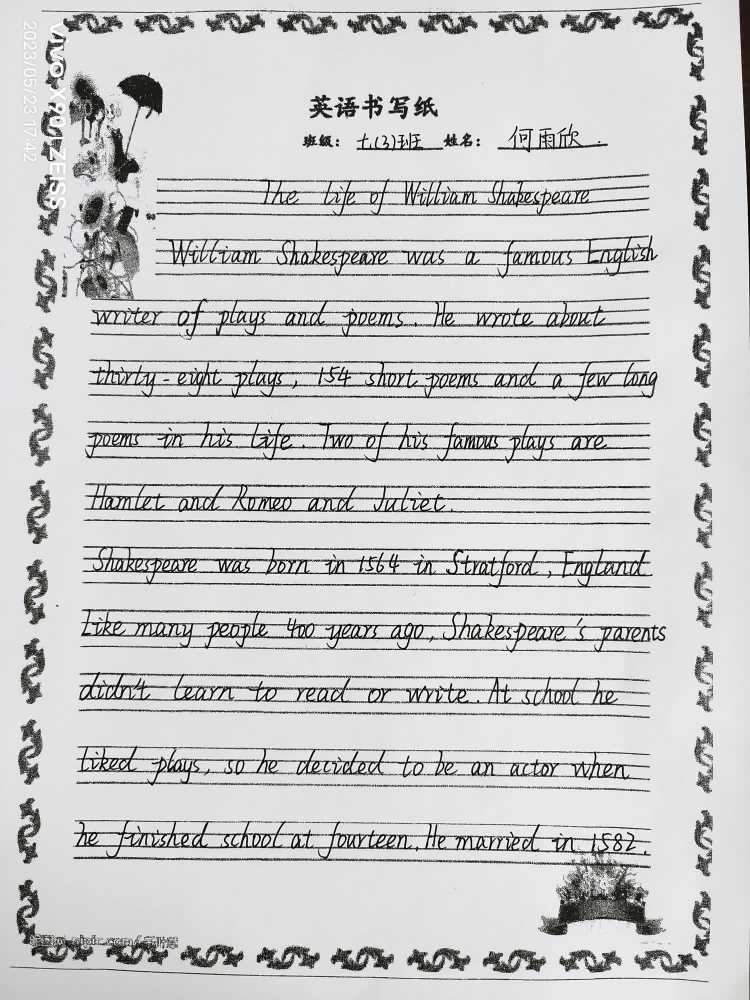 vivo X90 | ZEISS
2023/05/23 17:42
英语书写纸
班级： 七.(3)班 姓名： 何雨欣.
The life of William Shakespeare
William Shakespeare was a famous English
writer of plays and poems. He wrote about
thirty-eight plays, 154 short poems and a few long
poems in his life. Two of his famous plays are
Hamlet and Romeo and Juliet.
Shakespeare was born in 1564 in Stratford, England
Like many people 400 years ago, Shakespeare's parents
didn't learn to read or write. At school he
liked plays, so he decided to be an actor when
he finished school at fourteen. He married in 1582.